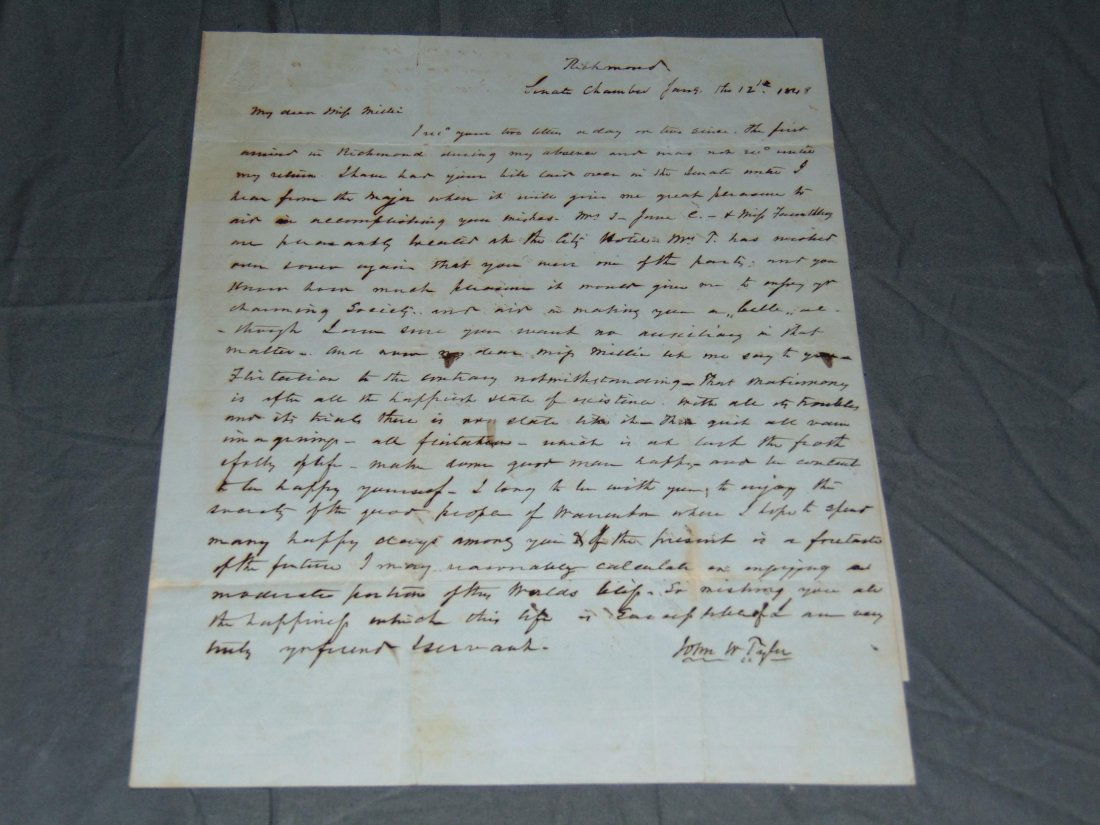 Richmond
Senate Chamber Jany. the 12th. 1848
My dear Miss Millie
I recd your two letters a day or two since. The first
arrived in Richmond during my absence and was not recd until
my return. I have had your bill laid over in the Senate until I
hear from the Major when it will give me great pleasure to
aid in accomplishing your wishes. Mrs T- Jane C. - & Miss
are pleasantly located at the City Hotel. Mrs T. has wished
over & over again that you were one of the party. and you
know how much pleasure it would give me to enjoy yr
charming Society. and aid in making you a "belle" al-
-though I am sure you want no auxiliary in that
matter. And now my dear Miss Millie let me say to you-
Flirtation to the contrary notwithstanding - That Matrimony
is after all the happiest state of existence. With all its troubles
and its trials there is no state like it - Then quit all vain
imaginings - all flirtation - which is at best the froth
of life - make some good man happy - and be content
to be happy yourself - I long to be with you, to enjoy the
society of the good people of Warrenton where I hope to spend
many happy days among you & if the present is a foretaste
of the future I may reasonably calculate on enjoying a
moderate portion of this Worlds bliss. So wishing you all
the happiness which this life is Susceptible of I am very
truly yr friend & servant.
John W Tyler